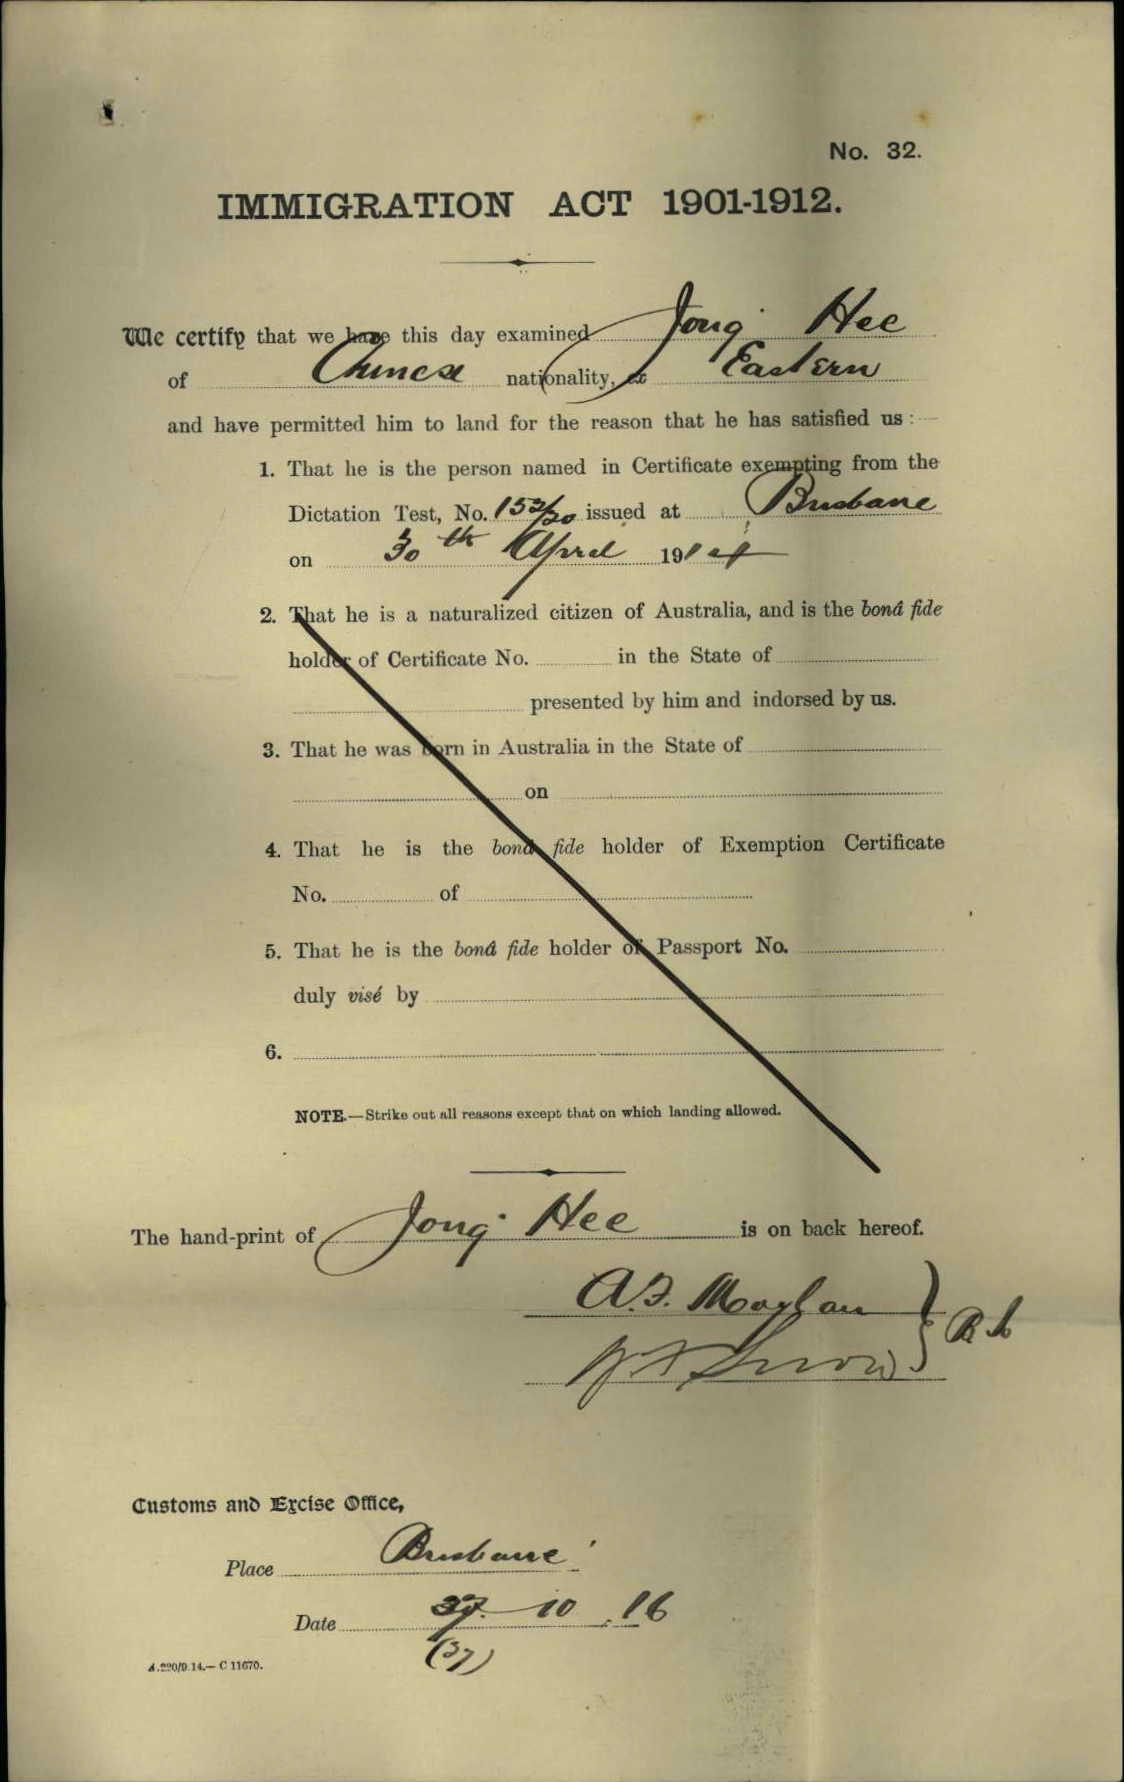 No. 32.
IMMIGRATION ACT 1901-1912.
We certify that we have this day examined Jong Hee
of Chinese nationality, ex Eastern
and have permitted him to land for the reason that he has satisfied us :—
1. That he is the person named in Certificate exempting from the
Dictation Test, No. 153/20 issued at Brisbane
on 30th April 1914
2. That he is a naturalized citizen of Australia, and is the bonâ fide
holder of Certificate No. in the State of
presented by him and indorsed by us.
3. That he was born in Australia in the State of
on
4. That he is the bonâ fide holder of Exemption Certificate
No. of
5. That he is the bonâ fide holder of Passport No.
duly visé by
6.
NOTE.—Strike out all reasons except that on which landing allowed.
The hand-print of Jong Hee is on back hereof.
A.F.
Customs and Excise Office,
Place Brisbane
Date 10 . 16
(37)
A.220/9.14.— C 11670.